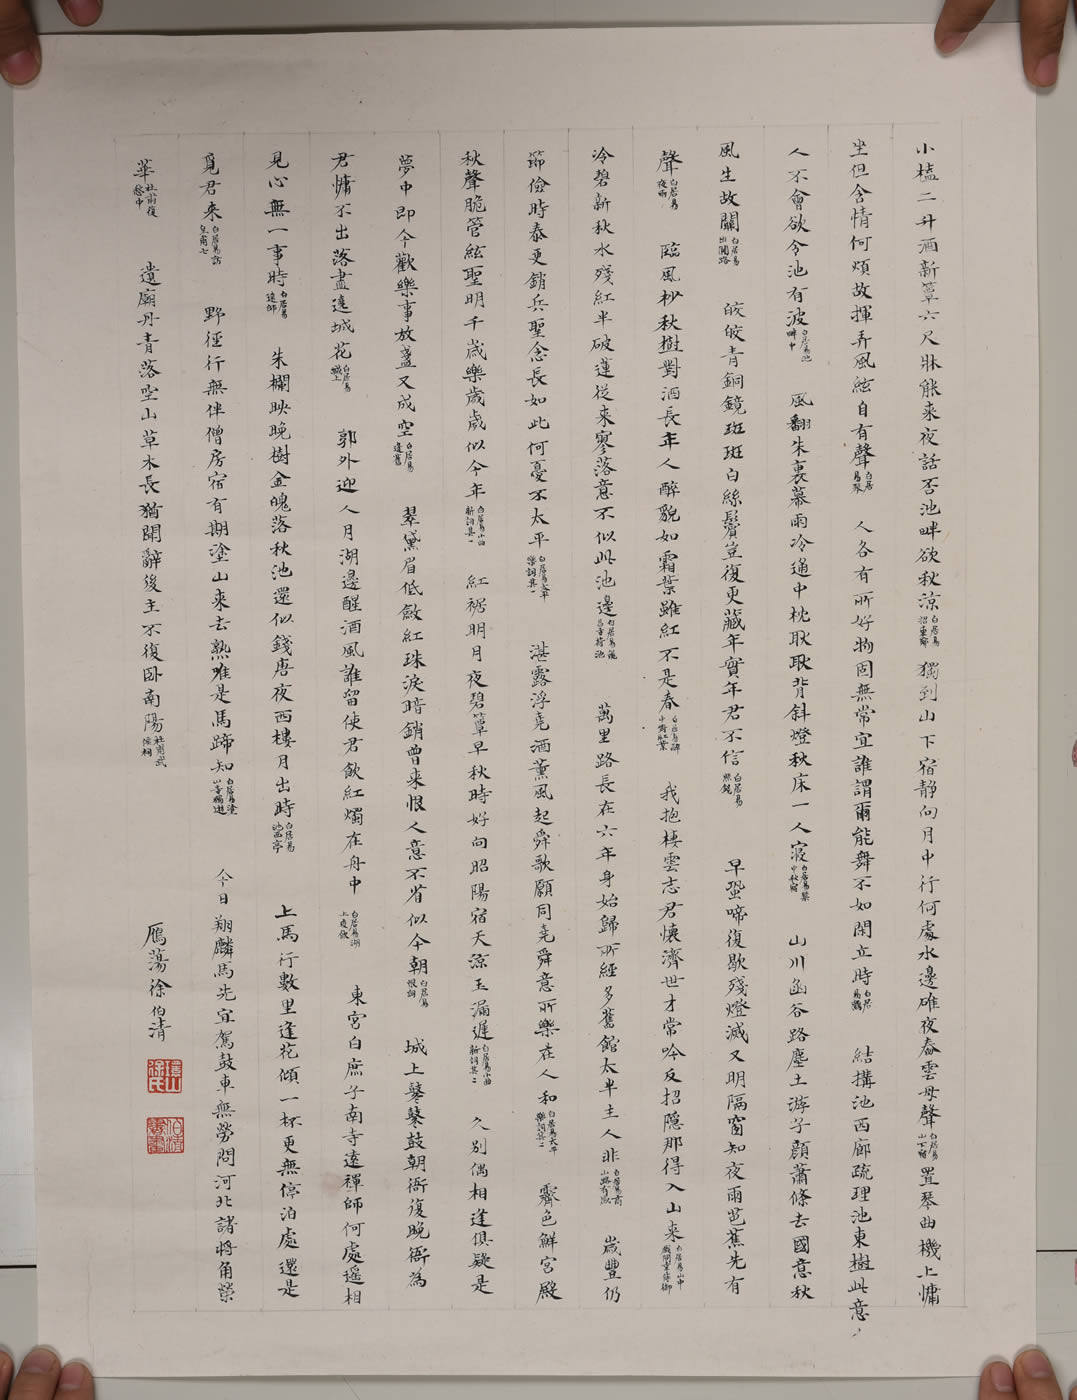 小榼二升酒新簟六尺牀能来夜話否池畔欲秋涼白居易招東鄰獨到山下宿静向月中行何處水邊碓夜舂雲母聲白居易山下宿置琴曲機上慵
坐但含情何煩故揮弄風絃自有聲白居易琴人各有所好物固無常宜誰謂爾能舞不如閑立時白居易鶴結搆池西廊疏理池東樹此意
人不會欲令池有波白居易池畔風翻朱裏幕雨冷通中枕耿耿背斜燈秋床一人寢白居易禁中秋宿山川函谷路塵土游子顔蕭條去國意秋
風生故關白居易出關路皎皎青銅鏡斑斑白絲鬢豈復更藏年實年君不信白居易照鏡早蛩啼復歇殘燈滅又明隔窗知夜雨芭蕉先有
聲白居易夜雨臨風杪秋樹對酒長年人醉貌如霜葉雖紅不是春白居易醉中對紅葉我抱棲雲志君懷濟世才常吟反招隱那得入山来白居易山中戲問韋侍御
冷碧新秋水殘紅半破蓮從来寥落意不似此池邊白居易龍昌寺荷池萬里路長在六年身始歸所經多舊館太半主人非白居易商山路有感歲豐仍
節儉時泰更銷兵聖念長如此何憂不太平白居易太平樂詞其一湛露浮堯酒薰風起舜歌願同堯舜意所樂在人和白居易太平樂詞其二霽色鮮宮殿
秋聲脆管絃聖明千歲樂歲歲似今年白居易小曲新詞其一紅裾明月夜碧簟早秋時好向昭陽宿天涼玉漏遲白居易小曲新詞其二久別偶相逢俱疑是
夢中即今歡樂事放盞又成空白居易逢舊翠黛眉低斂紅珠淚暗銷曾来恨人意不省似今朝白居易恨詞城上鼕鼕鼓朝衙復晚衙為
君慵不出落盡遶城花白居易城上郭外迎人月湖邊醒酒風誰留使君飲紅燭在舟中白居易湖上夜飲東宮白庶子南寺遠禪師何處遥相
見心無一事時白居易遠師朱欄映晚樹金魄落秋池還似錢唐夜西樓月出時白居易池西亭上馬行數里逢花傾一杯更無停泊處還是
覓君来白居易訪皇甫七野徑行無伴僧房宿有期塗山来去熟唯是馬蹄知白居易塗山寺獨遊今日翔麟馬先宜駕鼓車無勞問河北諸將角榮
華杜甫復愁十遺廟丹青落空山草木長猶聞辭後主不復卧南陽杜甫武侯祠
雁蕩徐伯清